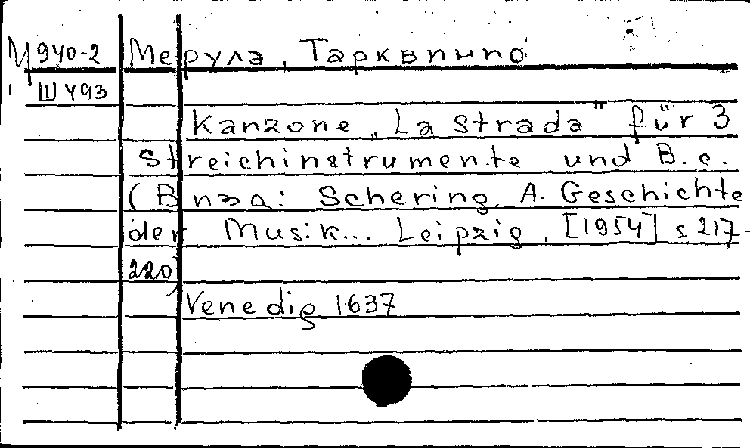 М 940-2 Мерула, Тарквинио
III 493
Kanzone „La strada" für 3
Streichinstrumente und B.c.
(В изд: Schering, A. Geschichte
der Musik... Leipzig, [1954] s 217-
220)
Venedig 1637